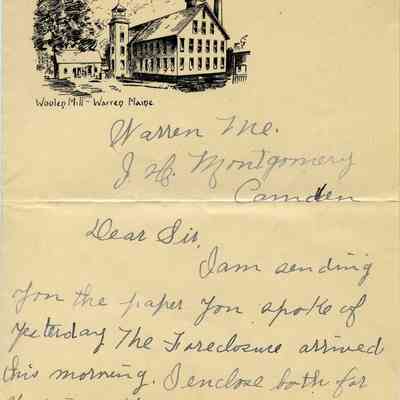 Woolen Mill - Warren Maine
Warren Me.
J. H. Montgomery
Camden
Dear Sir,
I am sending
you the paper you spoke of
yesterday The Foreclosure arrived
this morning. I enclose both for